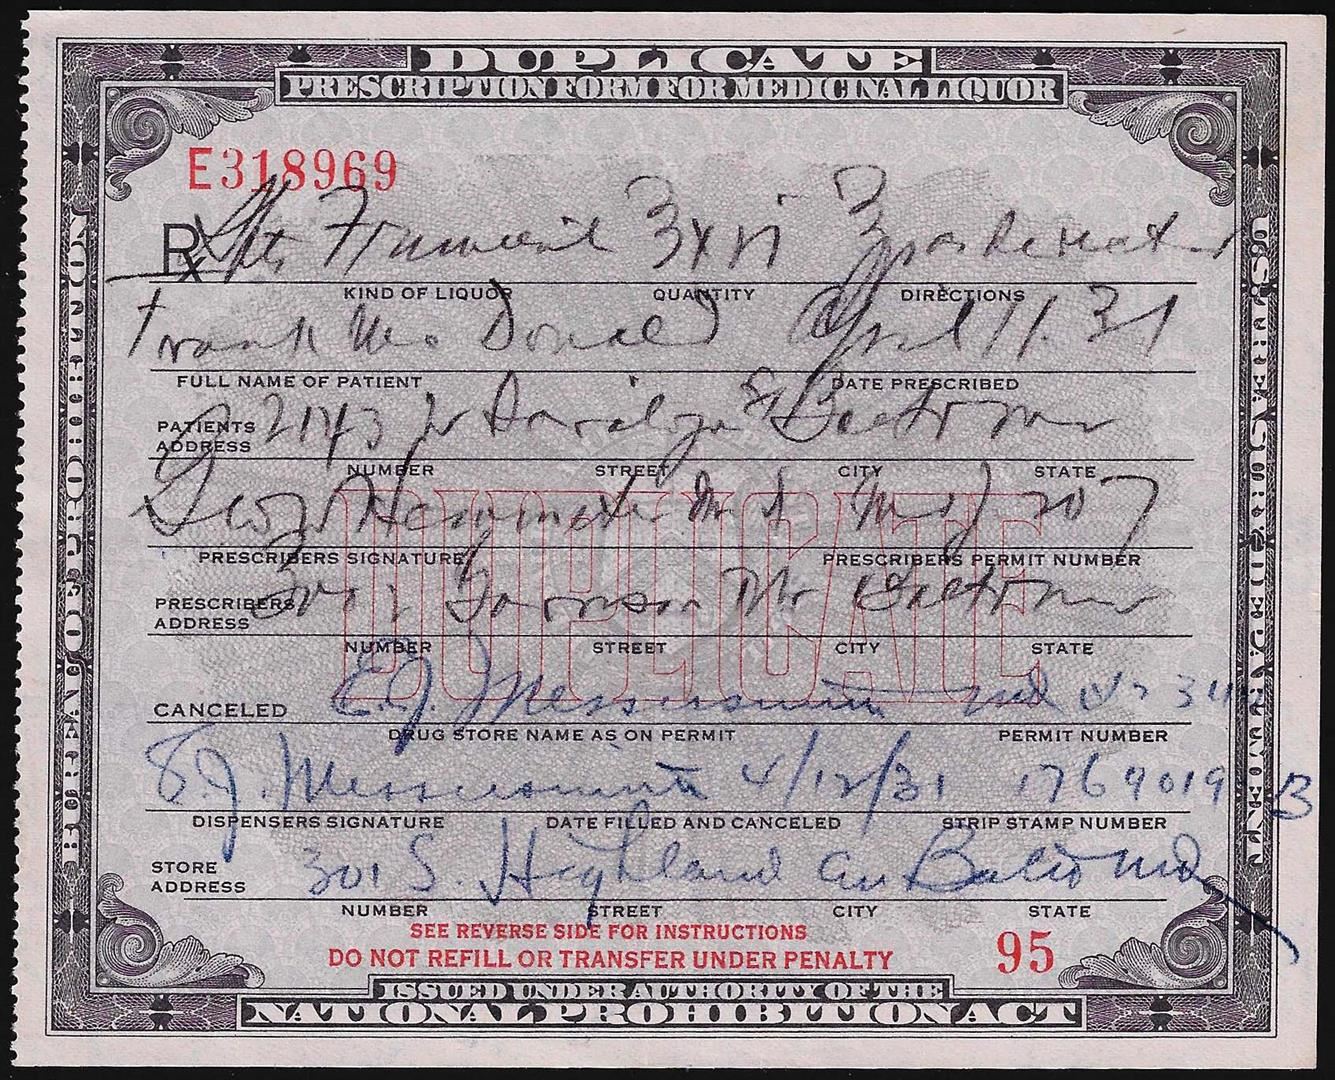 DUPLICATE
PRESCRIPTION FORM FOR MEDICINAL LIQUOR
E318969
Rx Spts Frumenti ʒxvi
KIND OF LIQUOR QUANTITY DIRECTIONS
Frank Mc Donald April 11. 31
FULL NAME OF PATIENT DATE PRESCRIBED
PATIENTS ADDRESS 2143 W St Balto Md
NUMBER STREET CITY STATE
Geo M D Md 207
PRESCRIBERS SIGNATURE PRESCRIBERS PERMIT NUMBER
PRESCRIBERS ADDRESS Garrison Balto Md
NUMBER STREET CITY STATE
CANCELED E.J. Messersmith Md
DRUG STORE NAME AS ON PERMIT PERMIT NUMBER
E.J. Messersmith 4/12/31 1769019 B
DISPENSERS SIGNATURE DATE FILLED AND CANCELED STRIP STAMP NUMBER
STORE ADDRESS 301 S. Highland Av Balto Md
NUMBER STREET CITY STATE
SEE REVERSE SIDE FOR INSTRUCTIONS
DO NOT REFILL OR TRANSFER UNDER PENALTY 95
ISSUED UNDER AUTHORITY OF THE
NATIONAL PROHIBITION ACT
BUREAU OF PROHIBITION
U.S. TREASURY DEPARTMENT
DUPLICATE